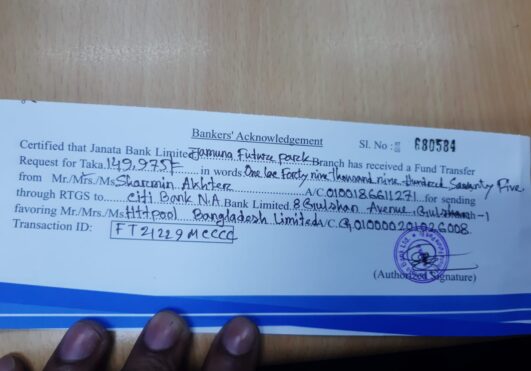 Bankers' Acknowledgement
Sl. No : 680584
Certified that Janata Bank Limited Jamuna Future park Branch has received a Fund Transfer
Request for Taka. 149,975/= in words One lac Forty nine thousand nine hundred Seventy Five
from Mr./Mrs./Ms Sharmin Akhter A/C. 0100186611271 for sending
through RTGS to Citi Bank N.A Bank Limited. 8 Gulshan Avenue, Gulshan-1
favoring Mr./Mrs./Ms. Httpool Bangladesh Limited A/C. G010000201026008.
Transaction ID: FT21229MCCCC
(Authorized Signature)